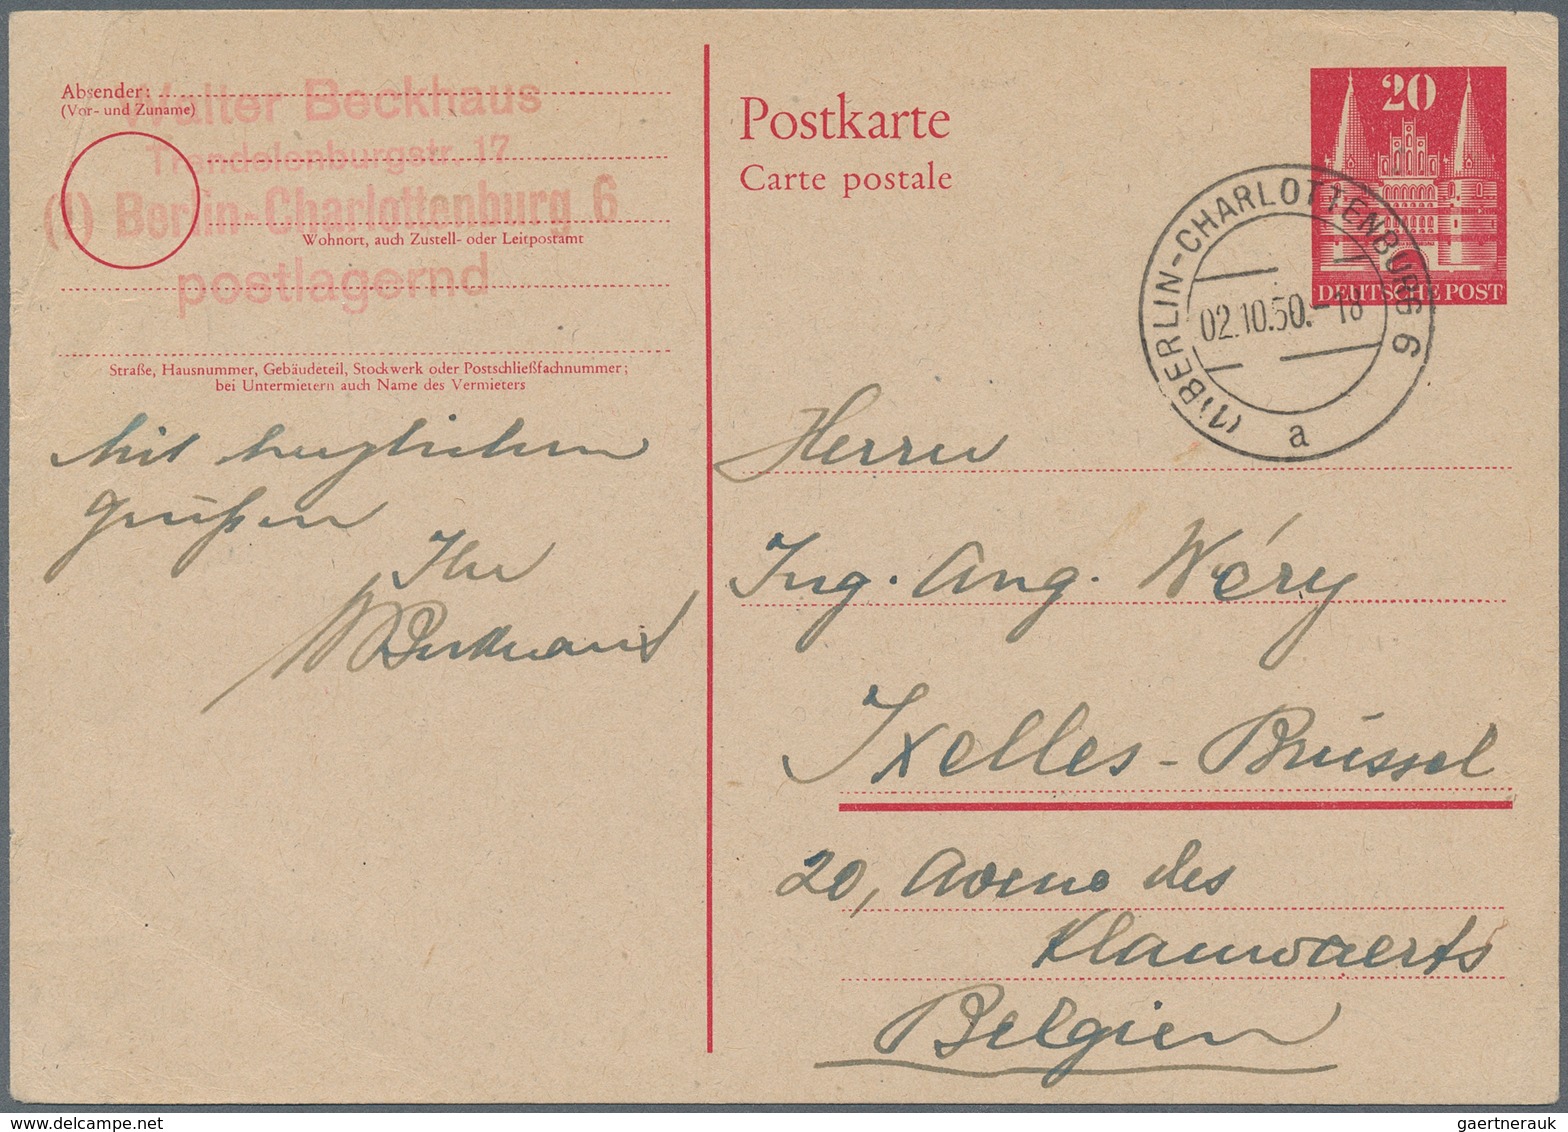 Absender:
(Vor- und Zuname)
Walter Beckhaus
Trendelenburgstr. 17
(1) Berlin-Charlottenburg 6
Wohnort, auch Zustell- oder Leitpostamt
postlagernd
Straße, Hausnummer, Gebäudeteil, Stockwerk oder Postschließfachnummer;
bei Untermietern auch Name des Vermieters
Mit herzlichen
Grüßen
Ihr
WBeckhaus
Postkarte
Carte postale
20
DEUTSCHE POST
(1) BERLIN-CHARLOTTENBURG 6
02.10.50.-18
a
Herrn
Ing. Aug. Wéry
Ixelles - Brüssel
20, Avenue des
Klauwaerts
Belgien
gaertnerauk
delcampe.net